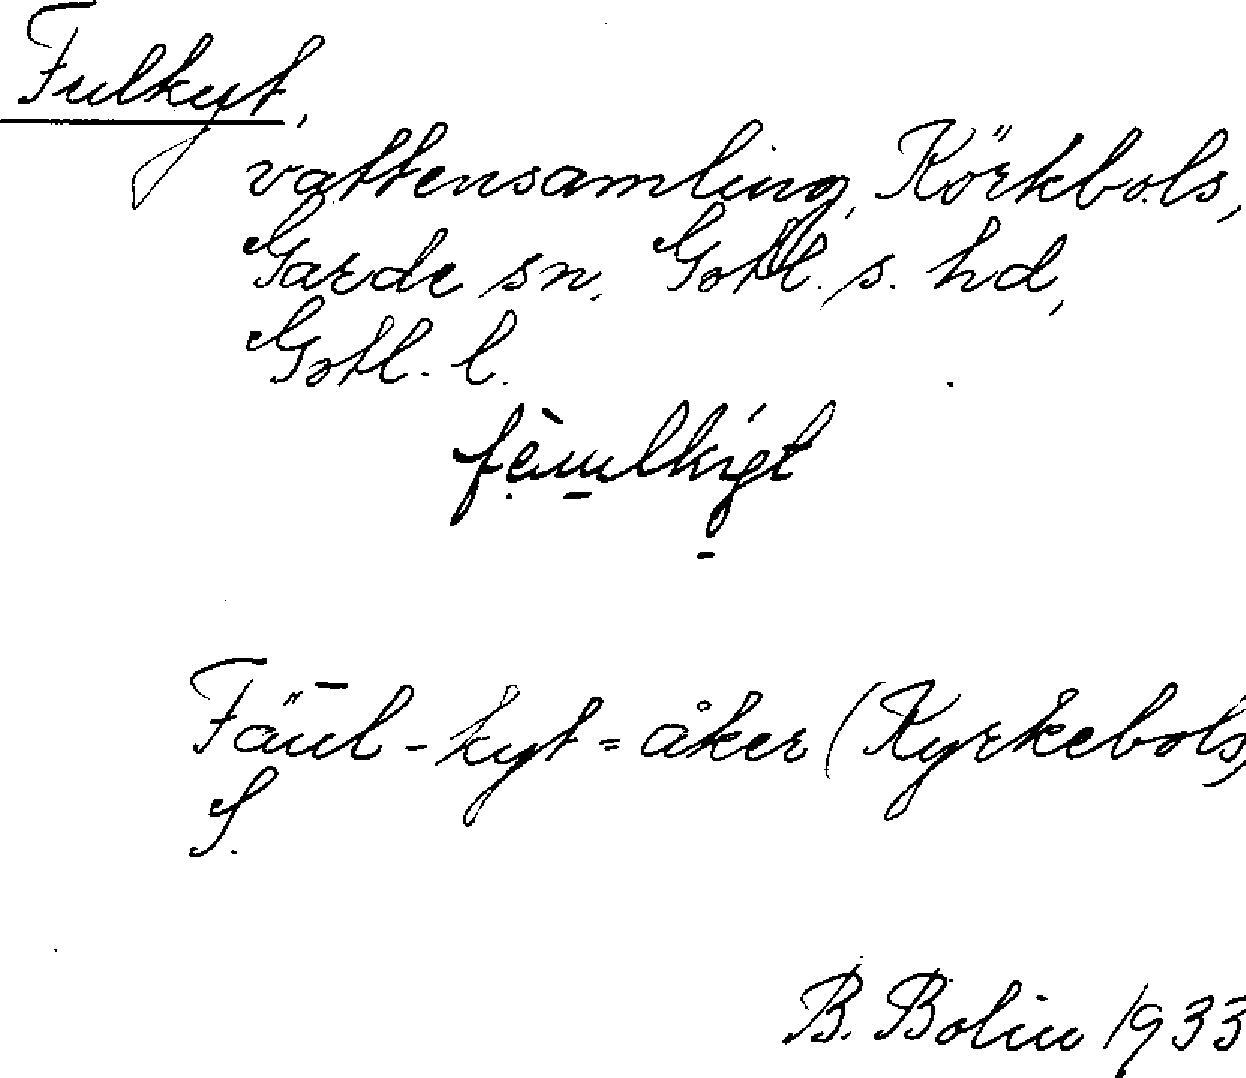 Fulkyt,
vattensamling, Körkbols,
Garde sn. Gotl. s. hd,
Gotl. l.
Fäul-kyt=åker (Kyrkebols)
S.
B. Bolin 1933